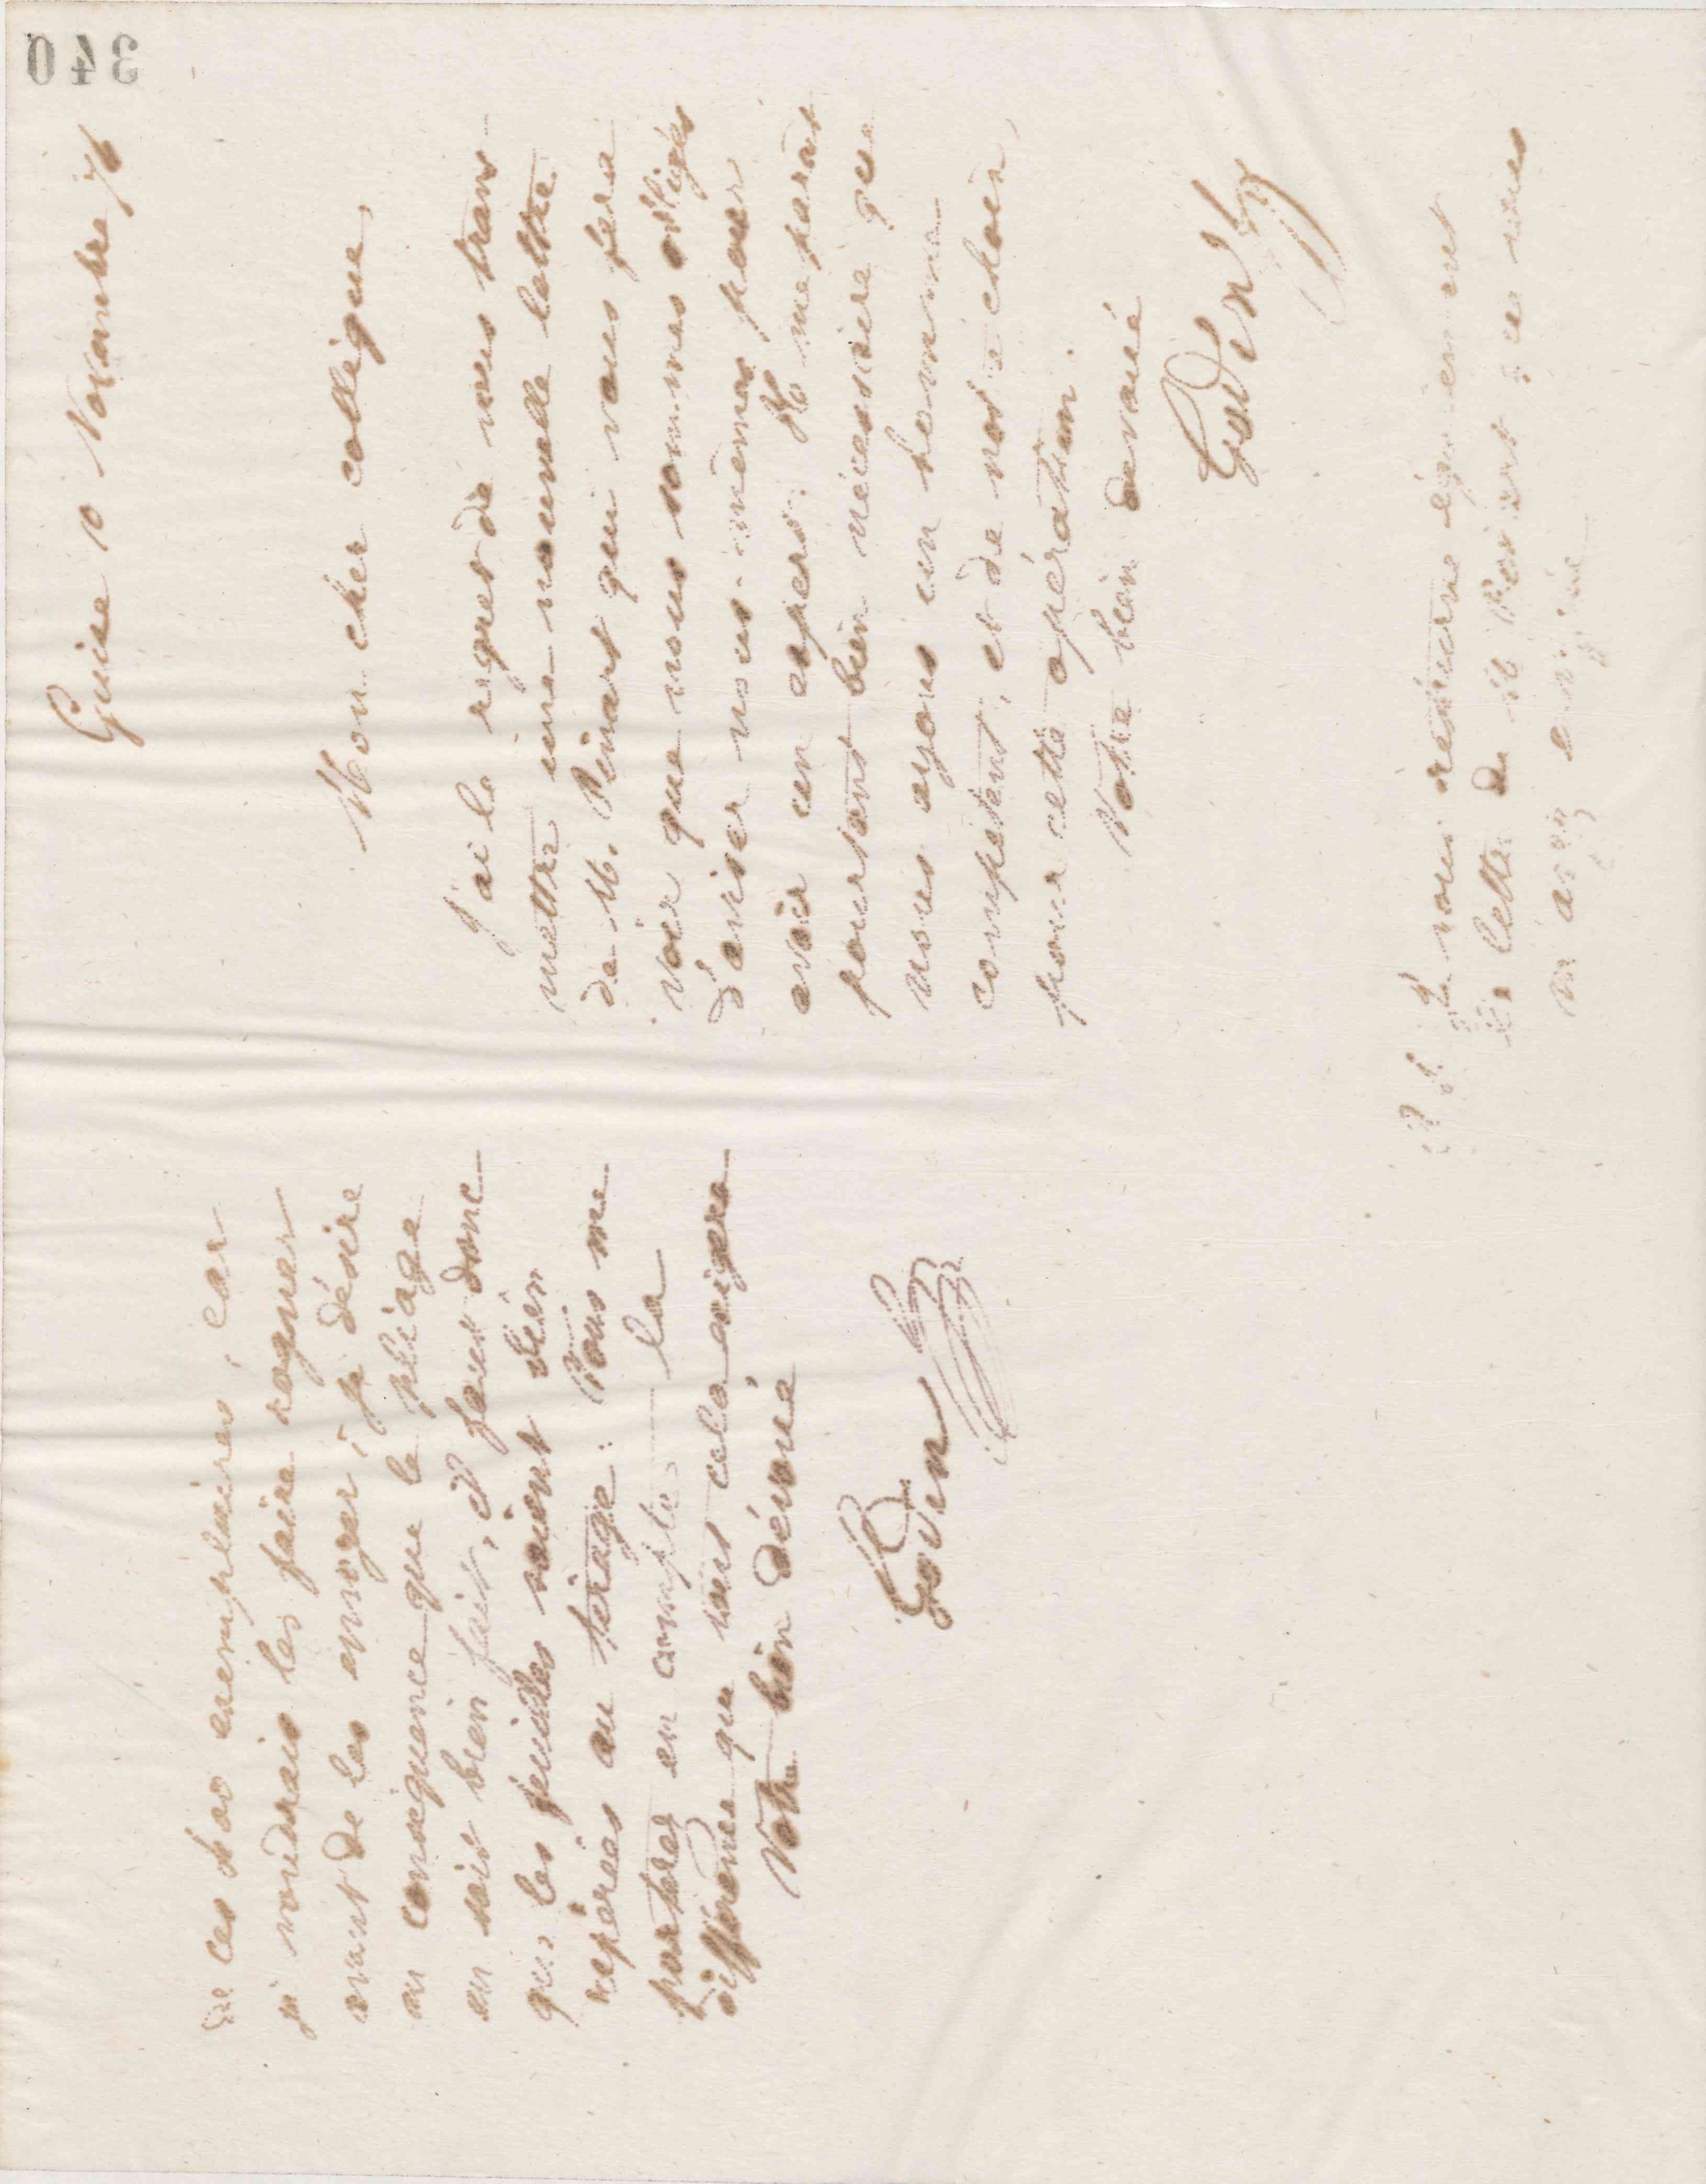 de ces 500 exemplaires, car
je voudrais les faire rogner
avant de les envoyer; je désire
en conséquence que le pliage
en soit bien fait, il faut donc
que les feuilles soient bien
repérées au tirage. Vous me
porterez en compte la
différence que tout cela exigera
Votre bien dévoué
Godin
340
Guise 10 Novembre 76
Mon cher collègue,
J'ai le regret de vous trans-
mettre une nouvelle lettre
de M. Pinart qui vous fera
voir que nous sommes obligés
d'aviser nous-mêmes pour
avoir un expert. Il me parait
pourtant bien nécessaire que
nous ayons un homme
compétent, et de notre choix,
pour cette opération.
Votre bien dévoué
Godin
P. S. Je vous retourne également
la lettre de M. que vous
m'avez envoyée